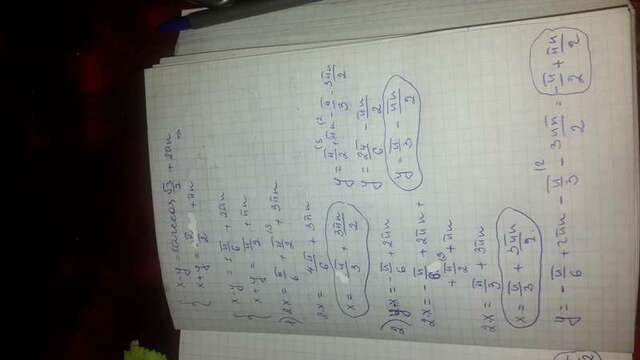 { x-y = ±arccos √3/2 + 2πn
x+y = π/2 + πn
{ x-y = ± π/6 + 2πn
x+y = π/2 + πn
1) 2x = π/6 + π/2 + 3πn
2x = 4π/6 + 3πn
x = π/3 + 3πn/2
y = π/2 + πn - π/3 - 3πn/2
y = π/6 - πn/2
y = π/3 - πn/2
2) yx = -π/6 + 2πn
2x = -π/6 + 2πn +
+ π/2 + πn
2x = π/3 + 3πn
x = π/3 + 3πn/2
y = -π/6 + 2πn - π/3 - 3πn/2 = -π/2 + πn/2